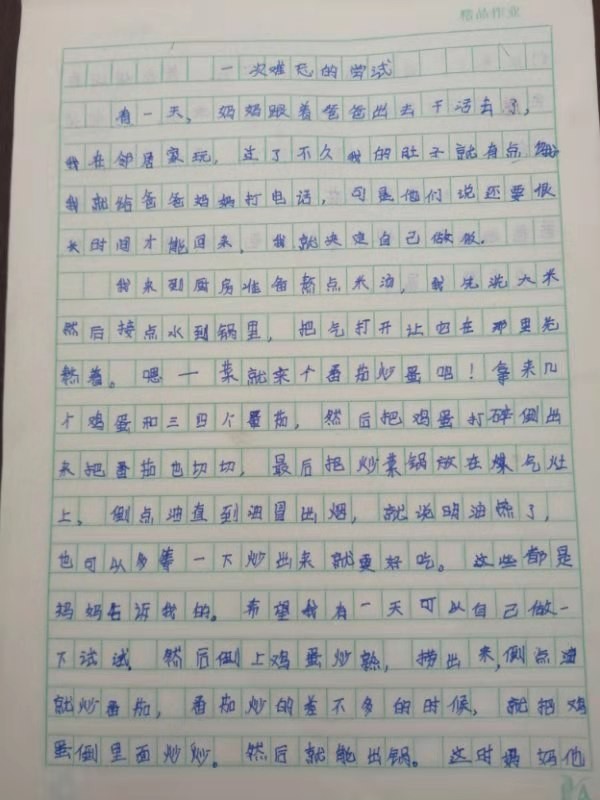 精品作业
一次难忘的尝试
有一天，妈妈跟着爸爸出去干活去了，
我在邻居家玩，过了不久我的肚子就有点饿
我就给爸爸妈妈打电话，可是他们说还要很
长时间才能回来，我就决定自己做饭.
我来到厨房准备熬点米汤，我先洗大米
然后接点水到锅里，把气打开让它在那里先
熬着。嗯一菜就来个番茄炒蛋吧！拿来几
个鸡蛋和三四个番茄，然后把鸡蛋打碎倒出
来把番茄也切切，最后把炒菜锅放在煤气灶
上，倒点油直到油冒出烟，就说明油熟了，
也可以多等一下炒出来就更好吃。这些都是
妈妈告诉我的。希望我有一天可以自己做一
下试试.然后倒上鸡蛋炒熟，捞出来,倒点油
就炒番茄，番茄炒的差不多的时候，就把鸡
蛋倒里面炒炒。然后就能出锅。这时妈妈他